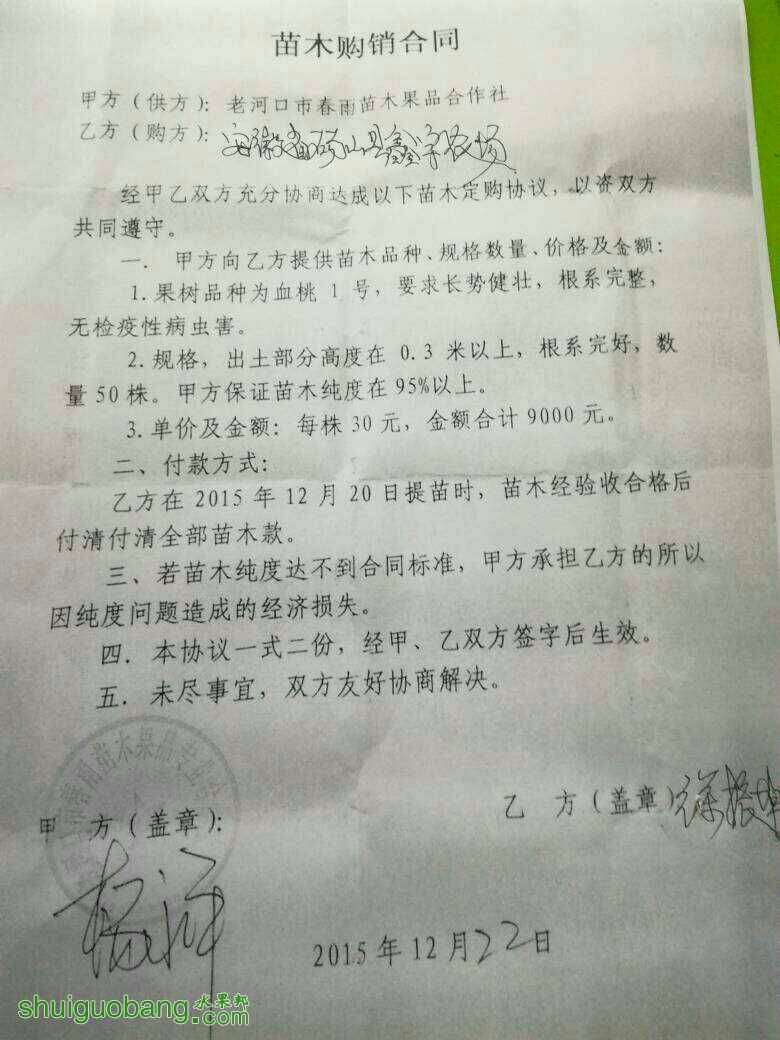 苗木购销合同
甲方（供方）：老河口市春雨苗木果品合作社
乙方（购方）：安徽省砀山县鑫宇农场
经甲乙双方充分协商达成以下苗木定购协议，以资双方
共同遵守。
一. 甲方向乙方提供苗木品种、规格数量、价格及金额：
1.果树品种为血桃 1 号，要求长势健壮，根系完整，
无检疫性病虫害。
2.规格，出土部分高度在 0.3 米以上，根系完好，数
量 50 株。甲方保证苗木纯度在 95%以上。
3.单价及金额：每株 30 元，金额合计 9000 元。
二、付款方式：
乙方在 2015 年 12 月 20 日提苗时，苗木经验收合格后
付清付清全部苗木款。
三、若苗木纯度达不到合同标准，甲方承担乙方的所以
因纯度问题造成的经济损失。
四. 本协议一式二份，经甲、乙双方签字后生效。
五. 未尽事宜，双方友好协商解决。
苗木果品专业合
甲 方（盖章）：
乙 方（盖章）
2015 年 12 月 22 日
水果邦
shuiguobang.com